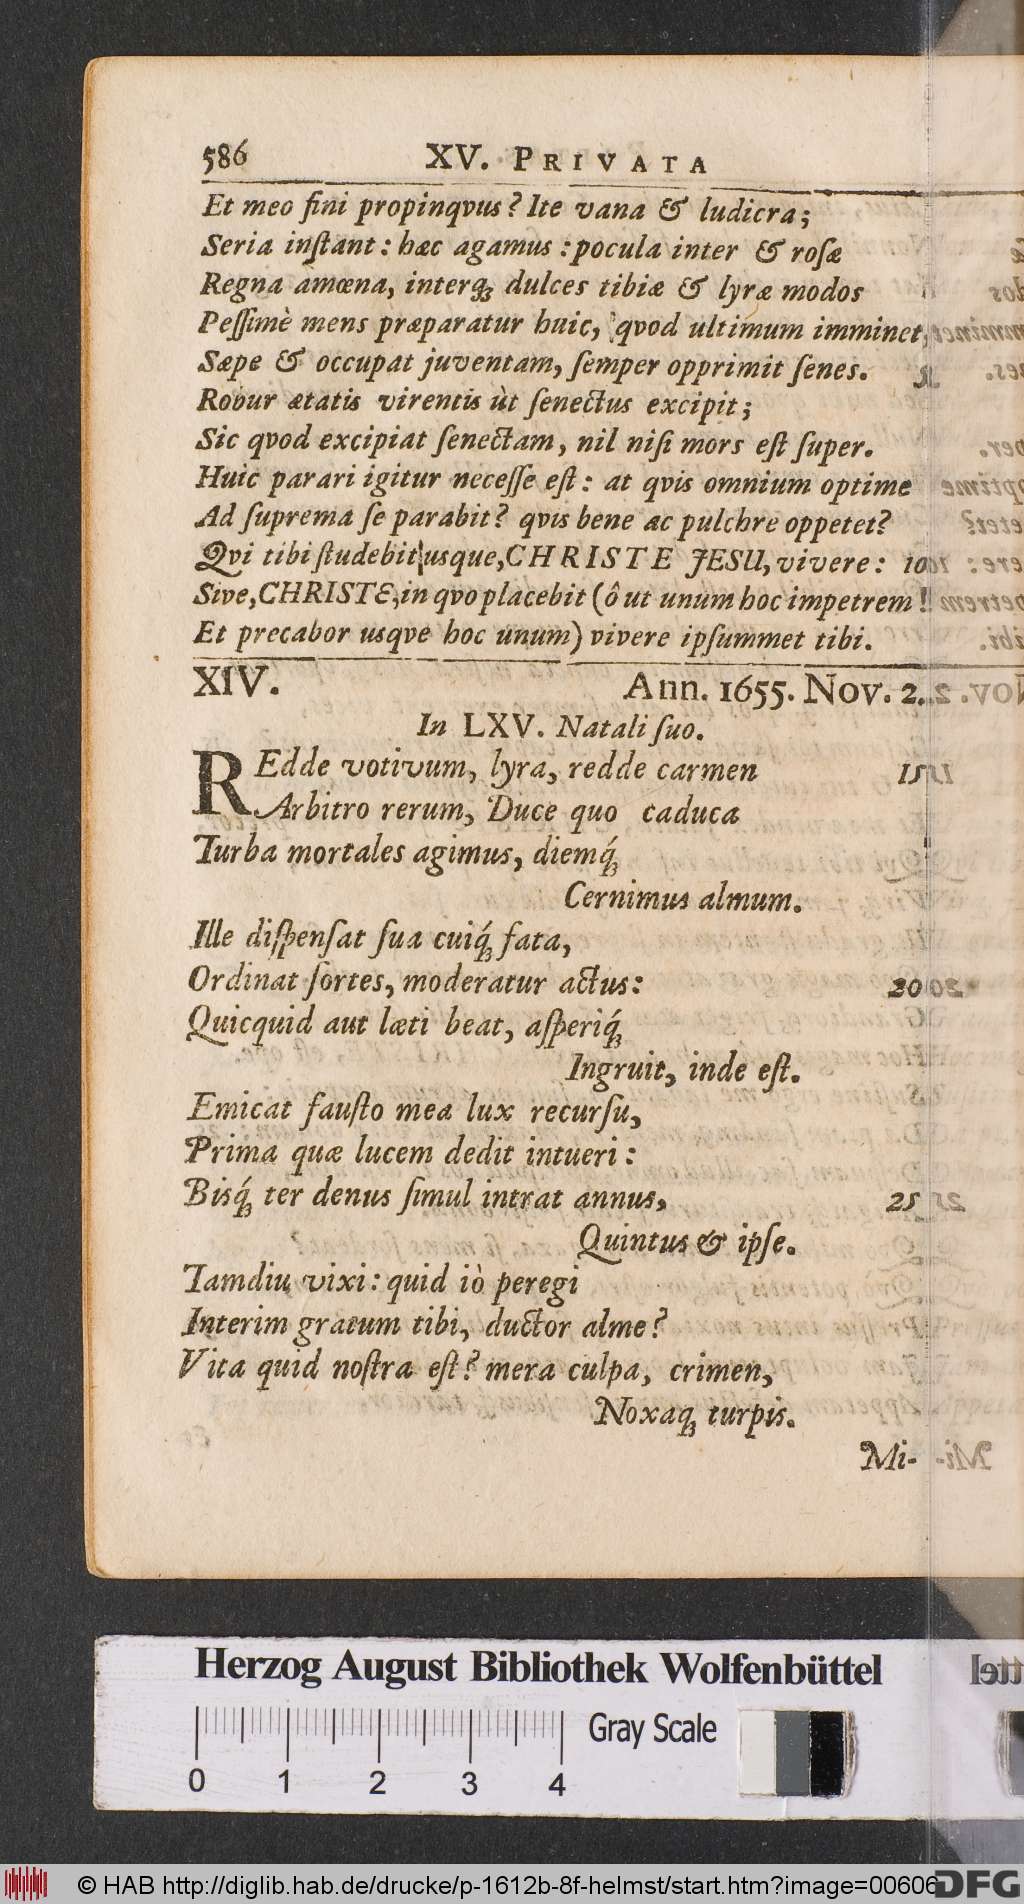 586 XV. PRIVATA
Et meo fini propinqvus? Ite vana & ludicra;
Seria inſtant: hæc agamus: pocula inter & roſæ
Regna amœna, interq; dulces tibiæ & lyræ modos
Peſſimè mens præparatur huic, qvod ultimum imminet,
Sæpe & occupat juventam, ſemper opprimit ſenes. 5
Robur ætatis virentis ùt ſenectus excipit;
Sic qvod excipiat ſenectam, nil niſi mors eſt ſuper.
Huic parari igitur neceſſe eſt: at qvis omnium optime
Ad ſuprema ſe parabit? qvis bene ac pulchre oppetet?
Qvi tibi ſtudebit usque, CHRISTE JESU, vivere: 10
Sive, CHRISTE, in qvo placebit (ô ut unum hoc impetrem!
Et precabor usqve hoc unum) vivere ipſummet tibi.
XIV. Ann. 1655. Nov. 2.
In LXV. Natali ſuo.
REdde votivum, lyra, redde carmen 15
Arbitro rerum, Duce quo caduca
Turba mortales agimus, diemq́;
Cernimus almum.
Ille diſpenſat ſua cuiq́; fata,
Ordinat ſortes, moderatur actus: 20
Quicquid aut læti beat, aſperiq́;
Ingruit, inde eſt.
Emicat fauſto mea lux recurſu,
Prima quæ lucem dedit intueri:
Bisq́; ter denus ſimul intrat annus, 25
Quintus & ipſe.
Tamdiu vixi: quid iò peregi
Interim gratum tibi, ductor alme?
Vita quid noſtra eſt? mera culpa, crimen,
Noxaq; turpis.
Mi-
Herzog August Bibliothek Wolfenbüttel
Gray Scale
0 1 2 3 4
© HAB http://diglib.hab.de/drucke/p-1612b-8f-helmst/start.htm?image=00606
DFG